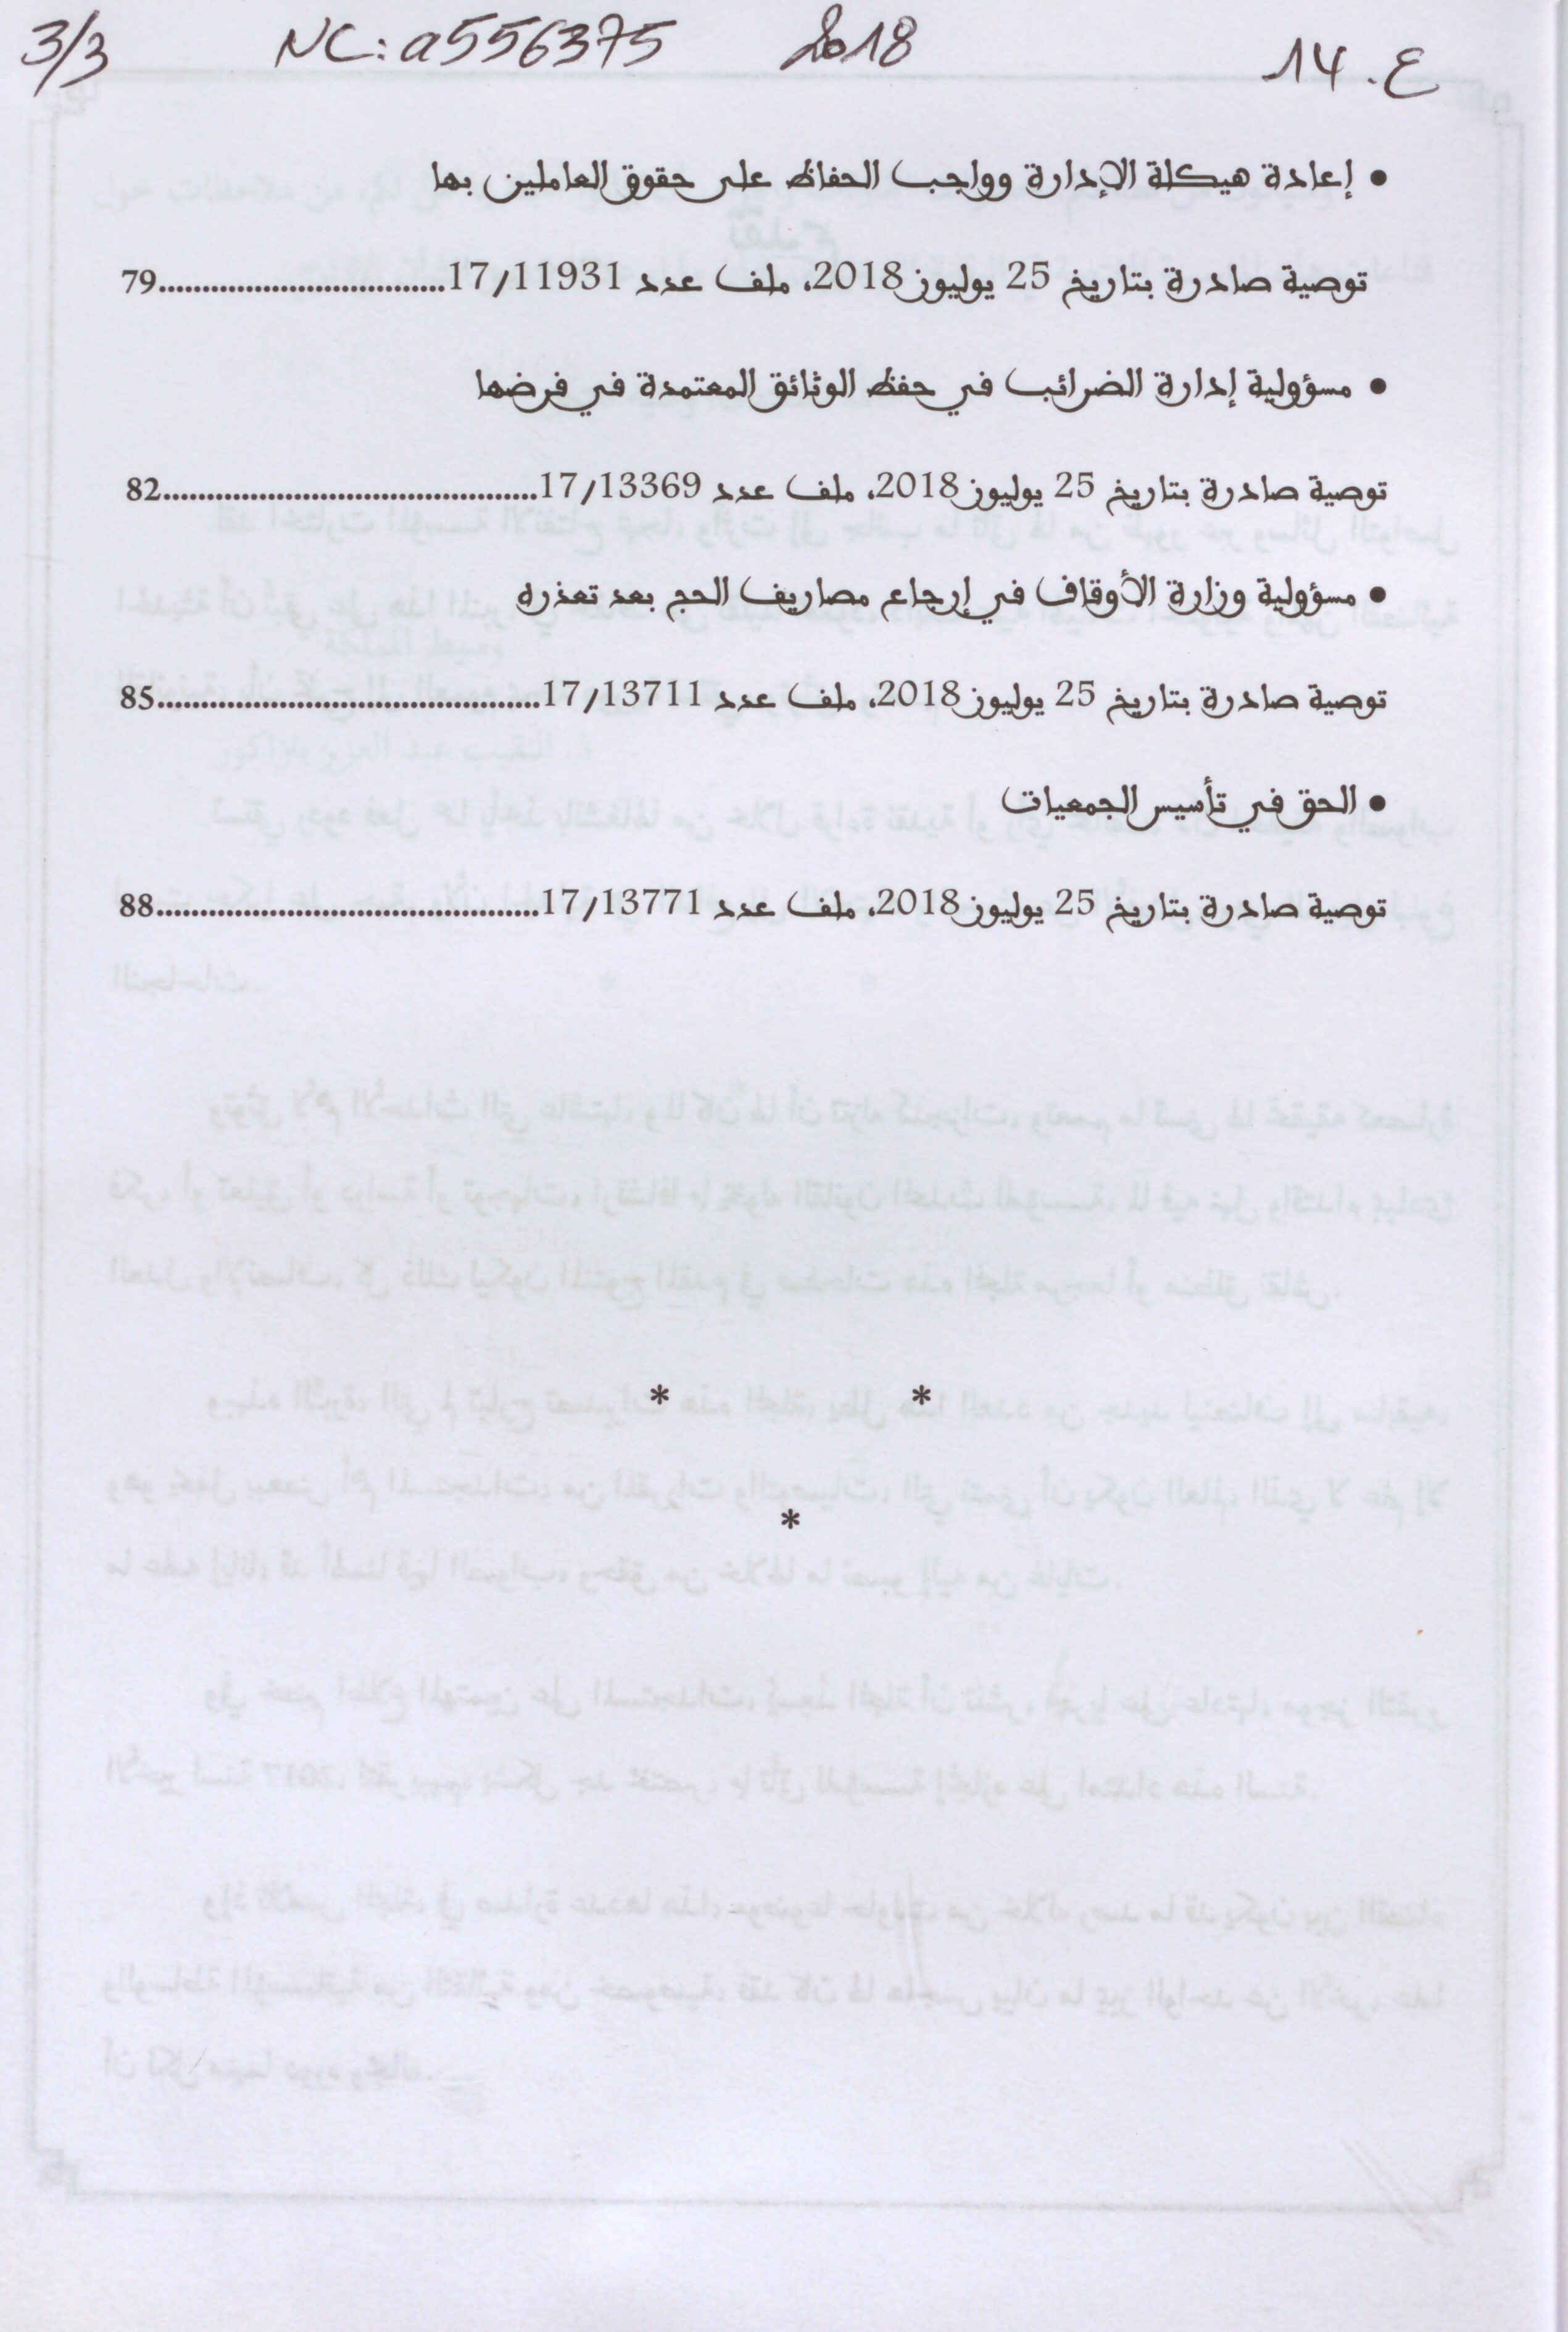 ع. 14 2018 NC: a556375 3/3
• إعادة هيكلة الإدارة وواجب الحفاظ على حقوق العاملين بها
توصية صادرة بتاريخ 25 يوليوز 2018، ملف عدد 17/11931.................................79
• مسؤولية إدارة الضرائب في حفظ الوثائق المعتمدة في فرضها
توصية صادرة بتاريخ 25 يوليوز 2018، ملف عدد 17/13369...........................................82
• مسؤولية وزارة الأوقاف في إرجاع مصاريف الحج بعد تعذره
توصية صادرة بتاريخ 25 يوليوز 2018، ملف عدد 17/13711............................................85
• الحق في تأسيس الجمعيات
توصية صادرة بتاريخ 25 يوليوز 2018، ملف عدد 17/13771............................................88
* *
*